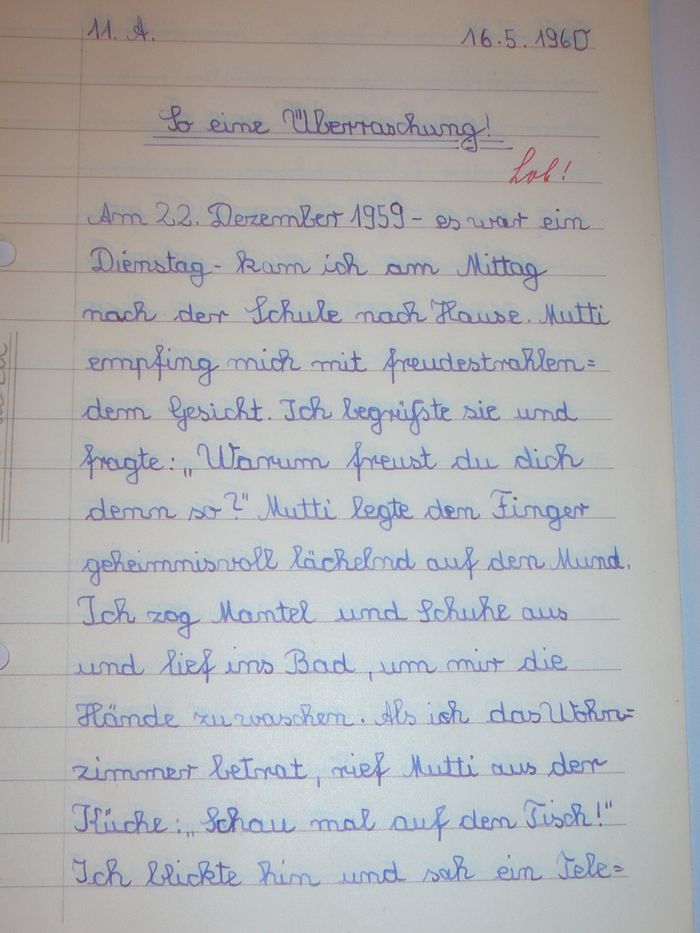 11. A.
16.5.1960
So eine Überraschung!
Lob!
Am 22. Dezember 1959 - es war ein
Dienstag - kam ich am Mittag
nach der Schule nach Hause. Mutti
empfing mich mit freudestrahlen=
dem Gesicht. Ich begrüßte sie und
fragte: „Warum freust du dich
denn so?" Mutti legte den Finger
geheimnisvoll lächelnd auf den Mund.
Ich zog Mantel und Schuhe aus
und lief ins Bad, um mir die
Hände zu waschen. Als ich das Wohn=
zimmer betrat, rief Mutti aus der
Küche: „Schau mal auf den Tisch!"
Ich blickte hin und sah ein Tele=